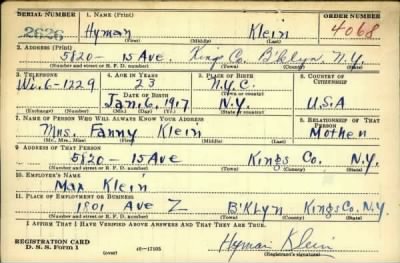 SERIAL NUMBER 1. NAME (Print) ORDER NUMBER
2626 Hyman Klein 4068
(First) (Middle) (Last)
2. ADDRESS (Print)
5820 - 15 Ave. Kings Co. B'klyn, N.Y.
(Number and street or R. F. D. number) (Town) (County) (State)
3. TELEPHONE 4. AGE IN YEARS 5. PLACE OF BIRTH 6. COUNTRY OF CITIZENSHIP
Wi. 6-1229 23 N.Y.C.
DATE OF BIRTH (Town or county)
Jan. 6, 1917 N.Y. U.S.A
(Exchange) (Number) (Mo.) (Day) (Yr.) (State or country)
7. NAME OF PERSON WHO WILL ALWAYS KNOW YOUR ADDRESS 8. RELATIONSHIP OF THAT PERSON
Mrs. Fanny Klein Mother
(Mr., Mrs., Miss) (First) (Middle) (Last)
9. ADDRESS OF THAT PERSON
5820 - 15 Ave Kings Co. N.Y.
(Number and street or R. F. D. number) (Town) (County) (State)
10. EMPLOYER'S NAME
Max Klein
11. PLACE OF EMPLOYMENT OR BUSINESS
1801 Ave Z B'KLyn Kings Co. N.Y.
(Number and street or R. F. D. number) (Town) (County) (State)
I AFFIRM THAT I HAVE VERIFIED ABOVE ANSWERS AND THAT THEY ARE TRUE.
REGISTRATION CARD
D. S. S. Form 1 (over) Hyman Klein
(Registrant's signature)